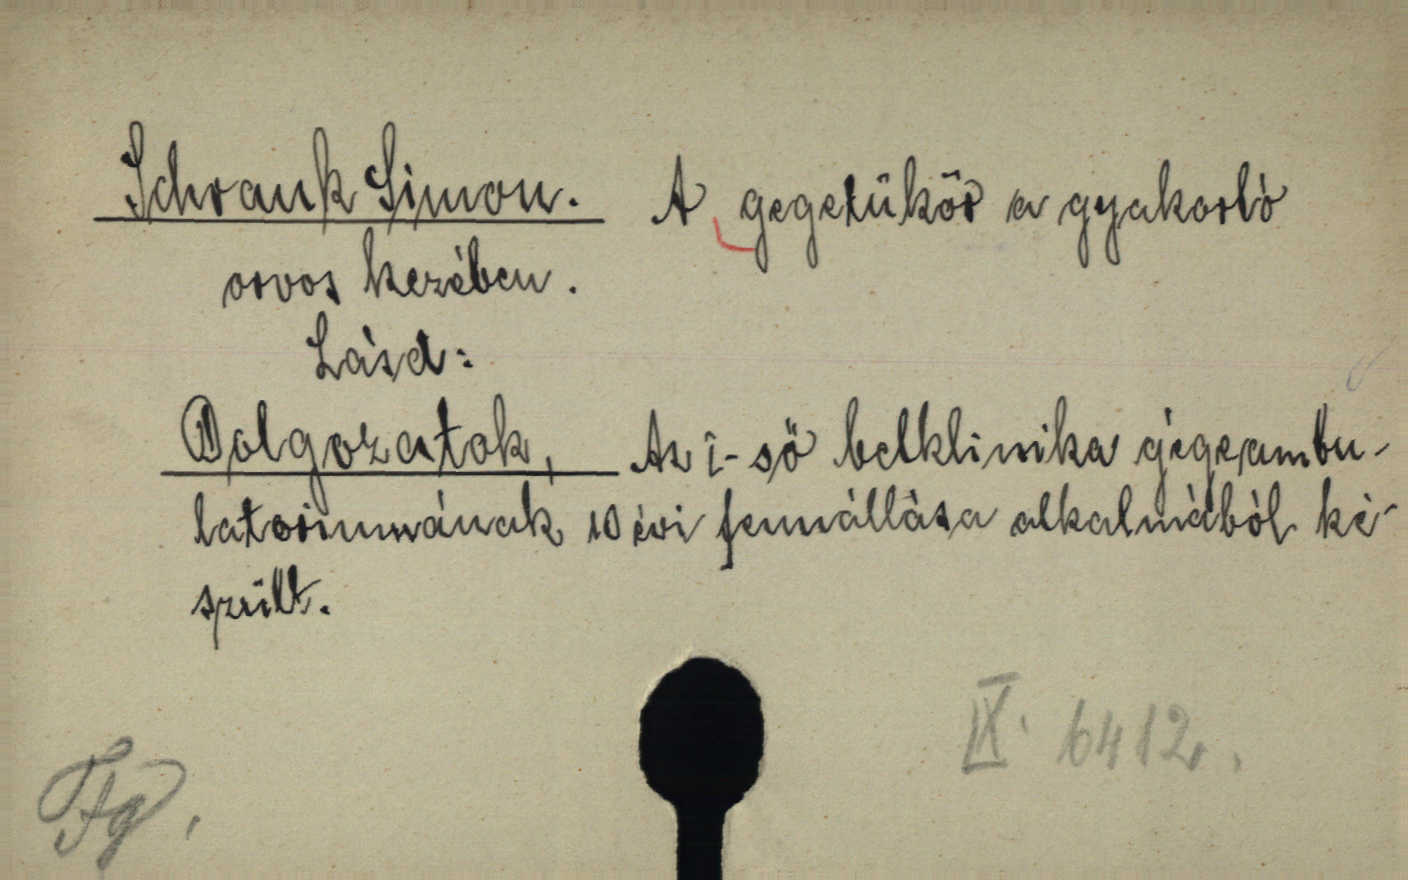 Schrank Simon. A gegetükör a gyakorló
orvos kezében.
Lásd:
Dolgozatok, Az I-ső belklinika gégeambu-
latoriumának 10 évi fennállása alkalmából ké-
szült.
IX. 6412.
Fg.